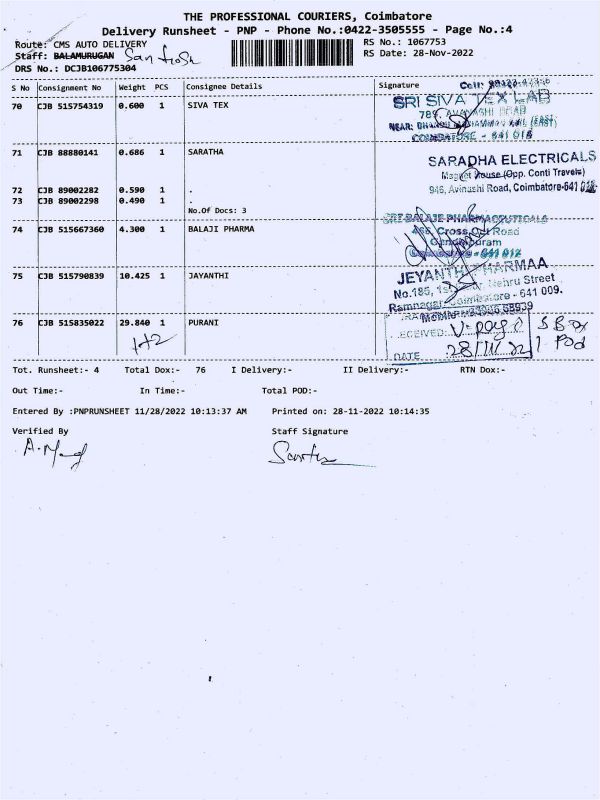 THE PROFESSIONAL COURIERS, Coimbatore
Delivery Runsheet - PNP - Phone No.:0422-3505555 - Page No.:4
Route: CMS AUTO DELIVERY
RS No.: 1067753
Staff: BALAMURUGAN Santhosh
RS Date: 28-Nov-2022
DRS No.: DCJB106775304
S No Consignment No Weight PCS Consignee Details Signature
70 CJB 515754319 0.600 1 SIVA TEX
SRI SIVA TEX LAB
COIMBATORE - 641 018
71 CJB 88880141 0.686 1 SARATHA
SARADHA ELECTRICALS
Magnet House (Opp. Conti Travels)
946, Avinashi Road, Coimbatore-641 018
72 CJB 89002282 0.590 1 .
73 CJB 89002298 0.490 1 .
No.Of Docs: 3
74 CJB 515667360 4.300 1 BALAJI PHARMA
SRI BALAJE PHARMACEUTICALS
466, Cross Cut Road
Gandhipuram
Coimbatore - 641 012
75 CJB 515790839 10.425 1 JAYANTHI
JEYANTHI PHARMAA
No.185, Nehru Street
Ramnagar, Coimbatore - 641 009.
76 CJB 515835022 29.840 1 PURANI
1+2
RECEIVED:
DATE 28/11/22
1 Pod
Tot. Runsheet:- 4 Total Dox:- 76 I Delivery:- II Delivery:- RTN Dox:-
Out Time:- In Time:- Total POD:-
Entered By :PNPRUNSHEET 11/28/2022 10:13:37 AM Printed on: 28-11-2022 10:14:35
Verified By Staff Signature